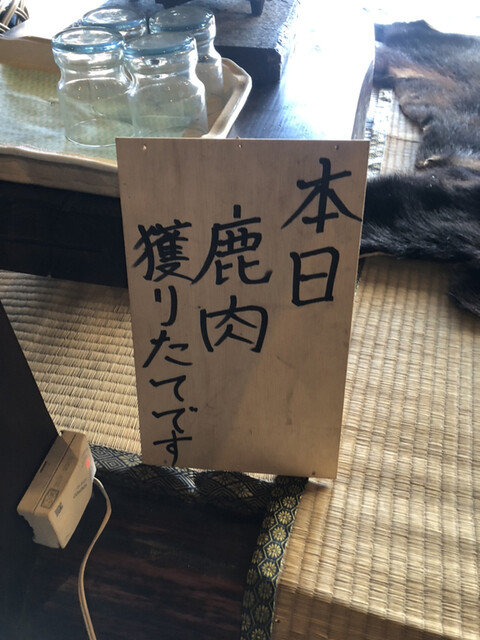 本日
鹿肉
獲りたてです